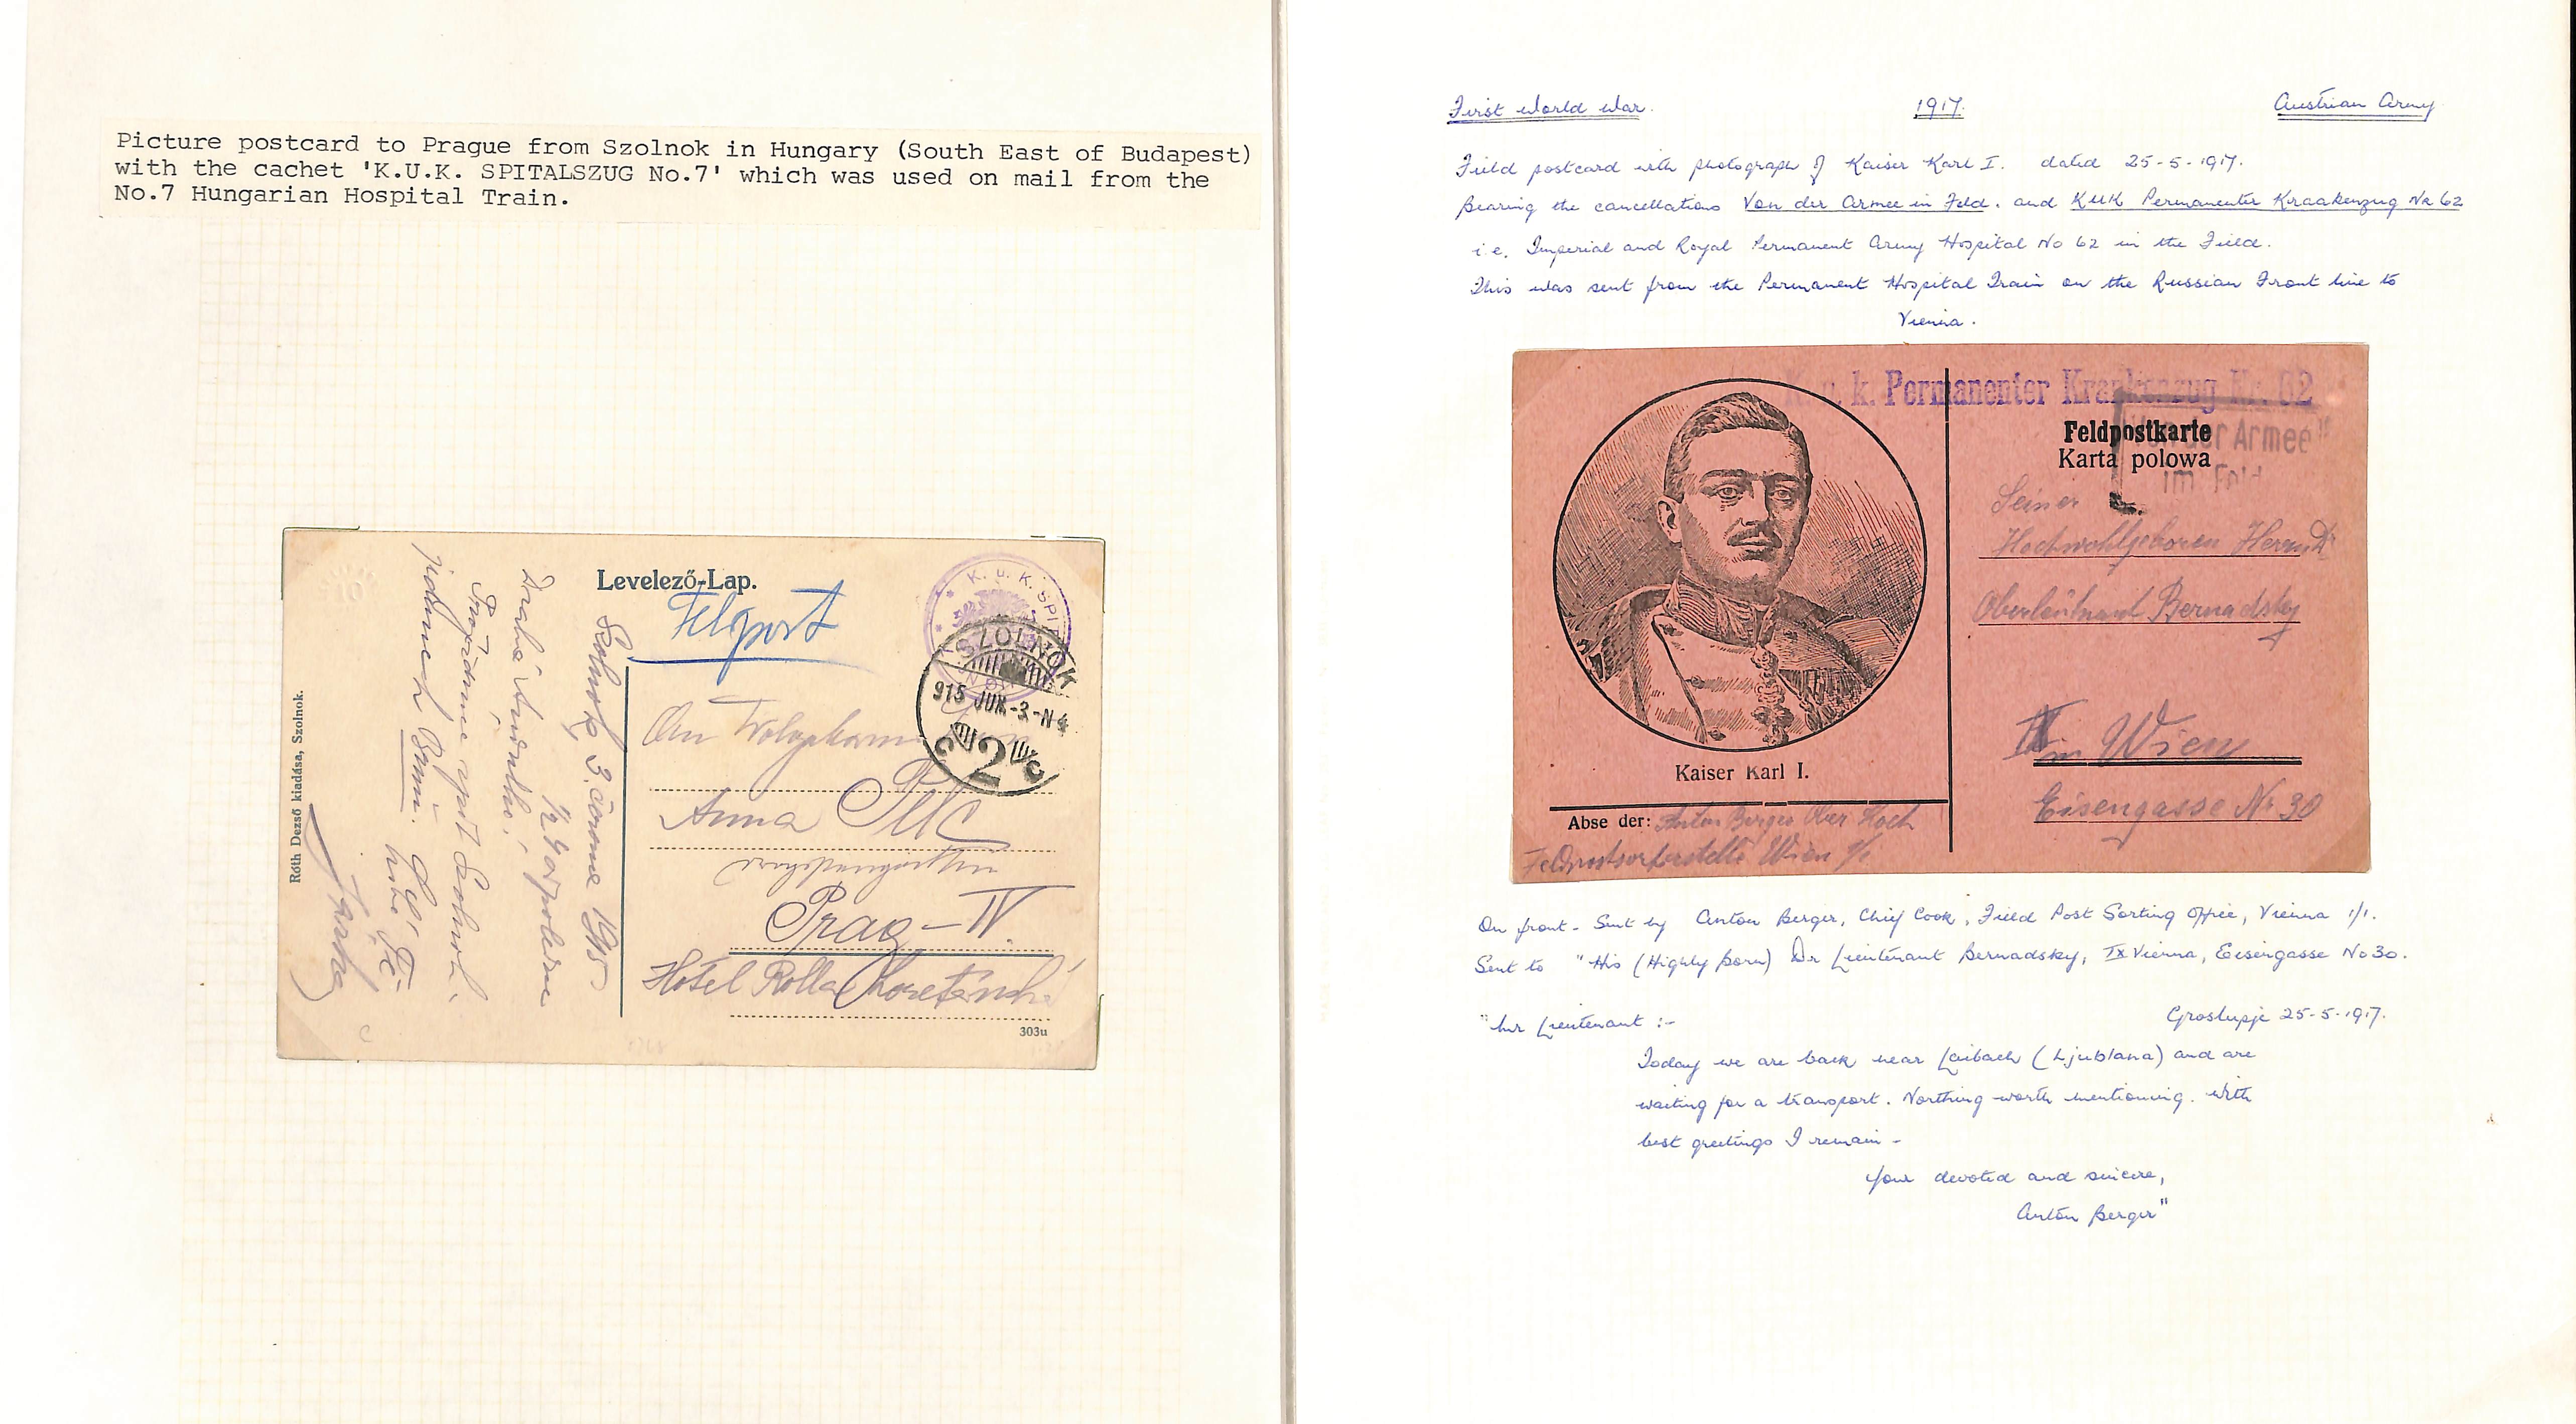 Picture postcard to Prague from Szolnok in Hungary (South East of Budapest)
with the cachet 'K.U.K. SPITALSZUG No.7' which was used on mail from the
No.7 Hungarian Hospital Train.
Levelező-Lap.
K. u. K. SPIT
SZOLNOK
915 JUN.-3.-N4
2
Anna
Prag-IV.
Hotel
303u
Szolnok, 3. června 1915
Drahá
Róth Dezső kiadása, Szolnok.
First World War.
1917.
Austrian Army
Field postcard with photograph of Kaiser Karl I. dated 25-5-1917.
Bearing the cancellations Von der Armee in Feld. and KUK Permanenter Kraakenzug Nr 62
i.e. Imperial and Royal Permanent Army Hospital No 62 in the Field.
This was sent from the Permanent Hospital Train on the Russian Front line to
Vienna.
K. u. k. Permanenter Krankenzug Nr. 62
Feldpostkarte
Karta polowa
der Armee
im Feld
Seiner
Hochwohlgeboren Herrn Dr
Oberleutnant Bernadsky
in Wien
Eisengasse Nr 30
Kaiser Karl I.
Abse der: Anton Berger Ober Koch
Wien 1/1
On front - Sent by Anton Berger, Chief Cook, Field Post Sorting Office, Vienna 1/1.
Sent to "His (Highly Born) Dr Lieutenant Bernadsky, IX Vienna, Eisengasse No 30.
Groslupje 25-5-1917.
Lieutenant :-
Today we are back near Laibach (Ljublana) and are
waiting for a transport. Northing worth mentioning. With
best greetings I remain -
Your devoted and sincere,
Anton Berger"